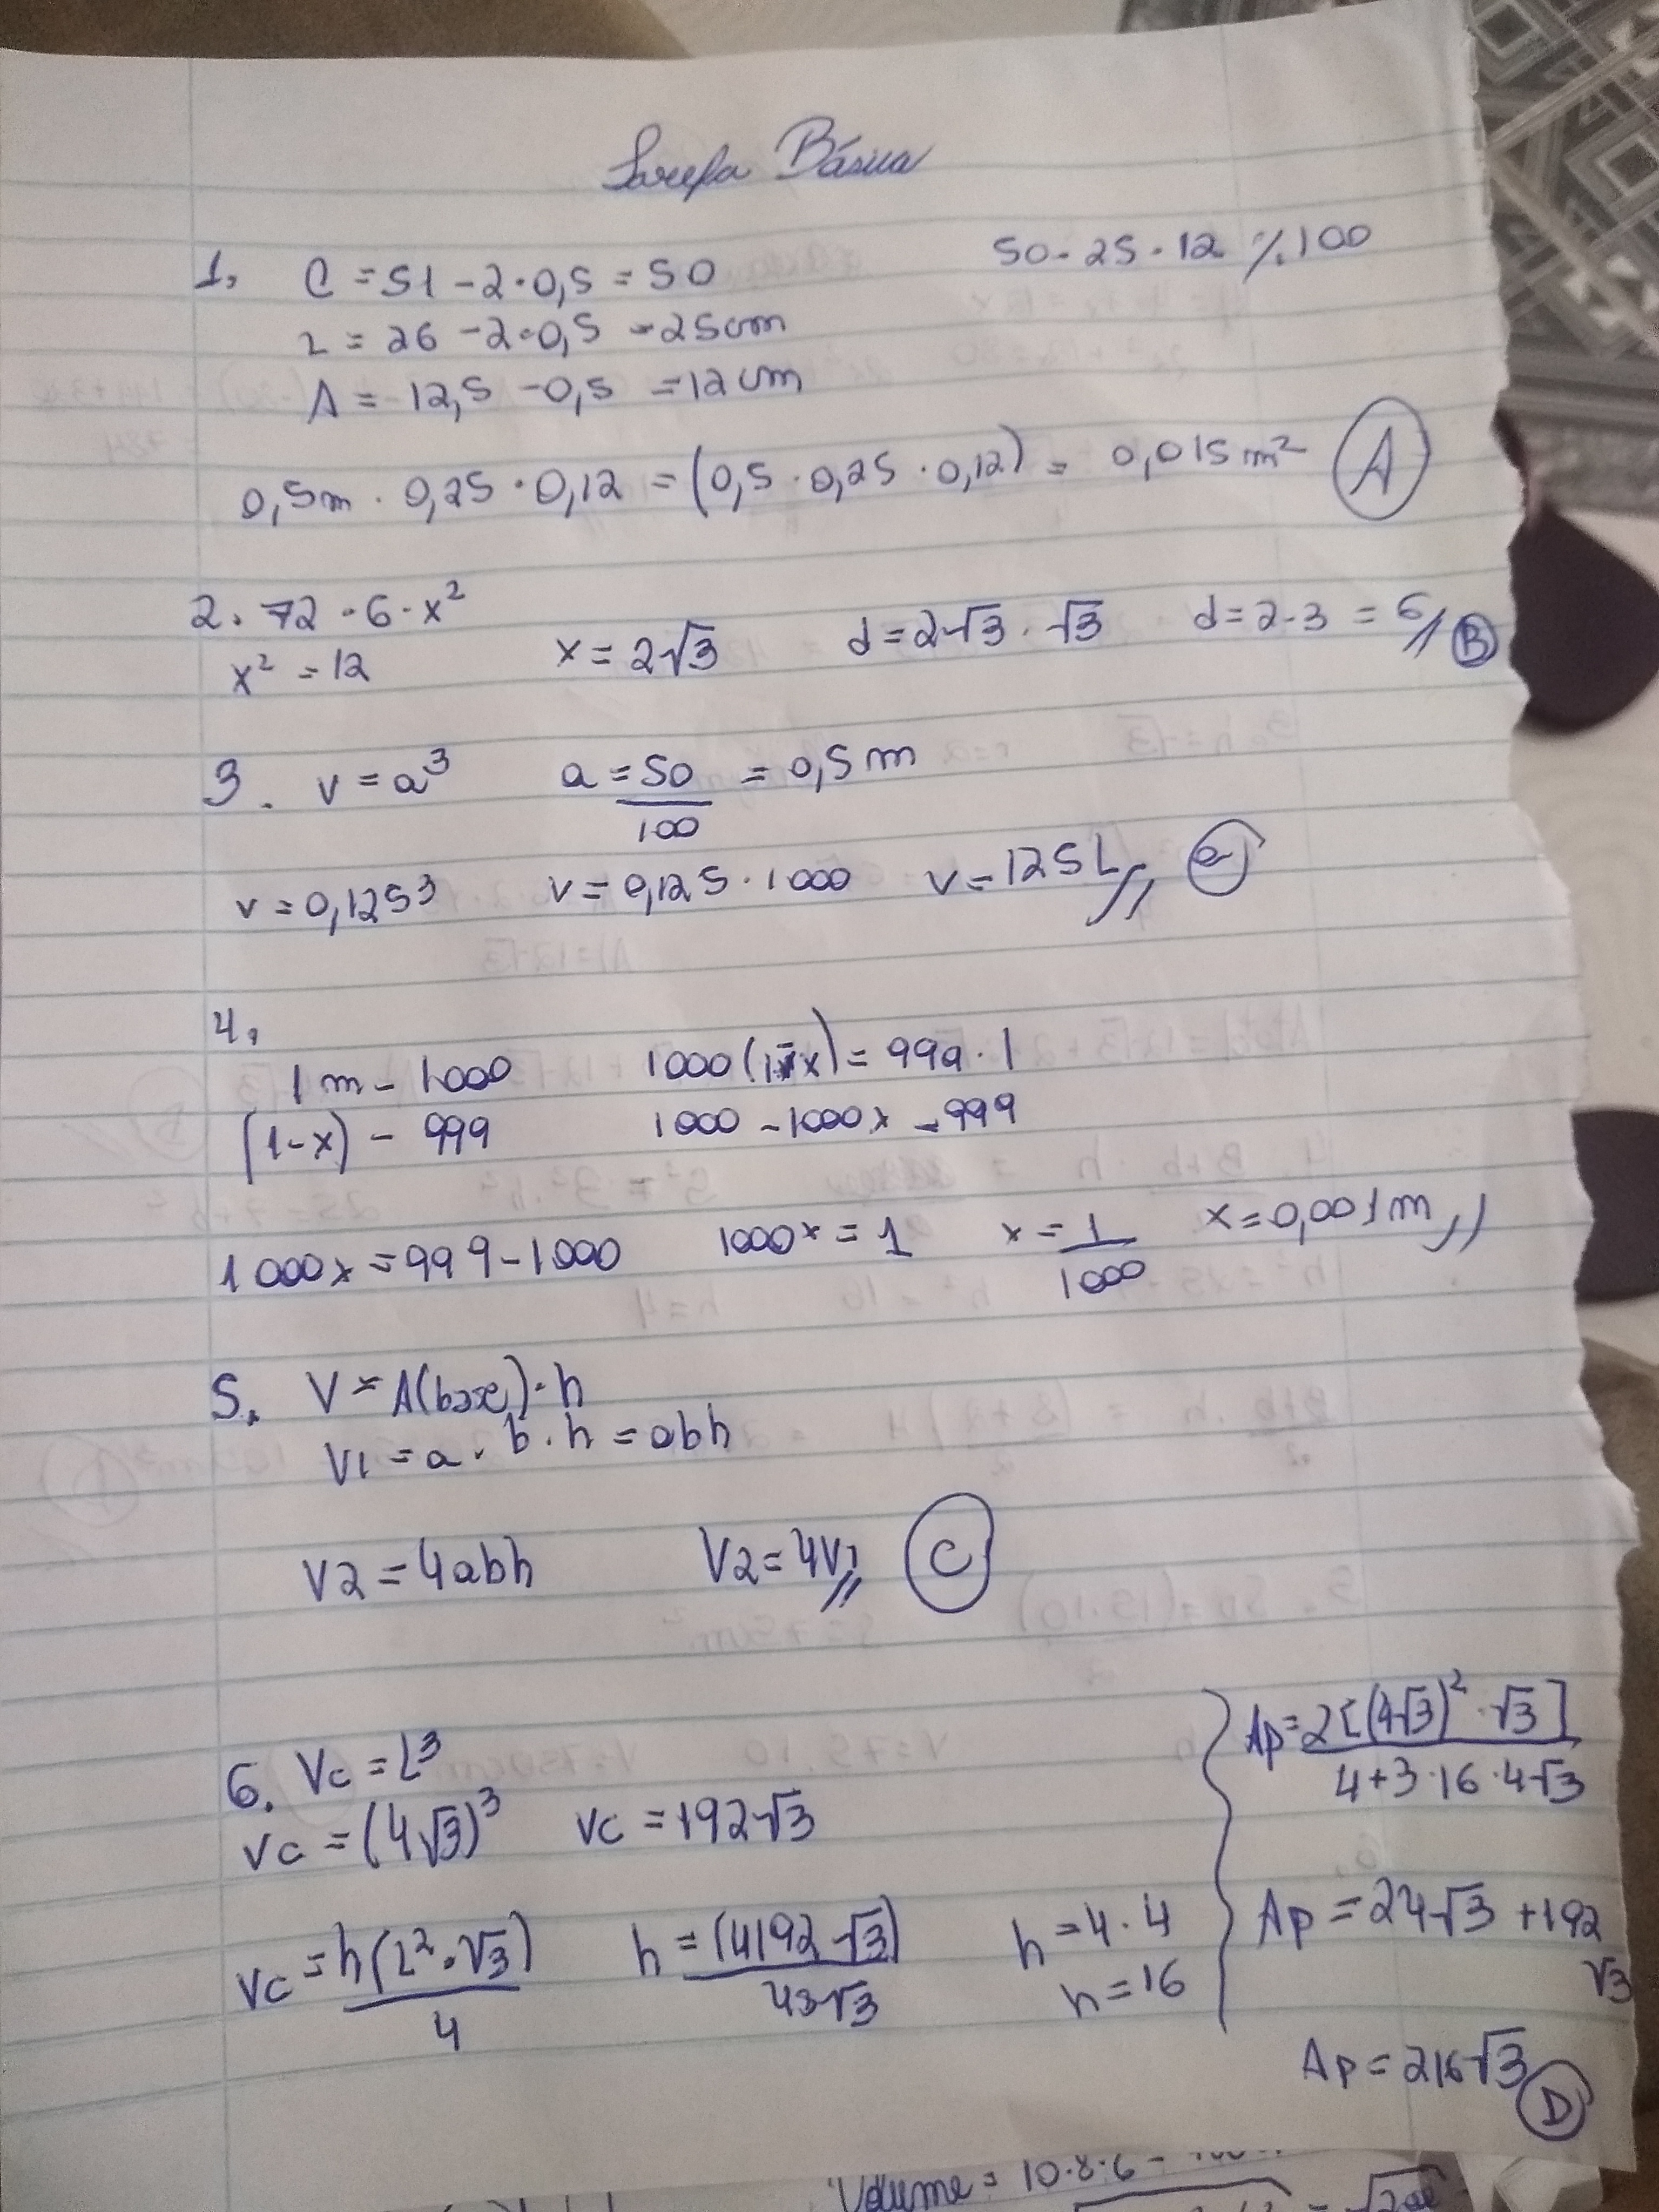 Tarefa Básica
1. C = 51 - 2 · 0,5 = 50
50 · 25 · 12 % 100
L = 26 - 2 · 0,5 = 25cm
A = 12,5 - 0,5 = 12cm
0,5m · 0,25 · 0,12 = (0,5 · 0,25 · 0,12) = 0,015 m² A
2. 72 · 6 · x²
x² = 12 x = 2√3 d = 2√3 · √3 d = 2 · 3 = 6// B
3. v = a³ a = 50/100 = 0,5m
v = 0,125³ v = 0,125 · 1000 v = 125L// e
4.
1m - 1000 1000(1-x) = 999 · 1
(1-x) - 999 1000 - 1000x = 999
1000x = 999 - 1000 1000x = 1 x = 1/1000 x = 0,001m//
5. V = A(base) · h
V1 = a · b · h = abh
V2 = 4abh V2 = 4V1// C
6. Vc = L³
Vc = (4√3)³ Vc = 192√3
Vc = h(L² · √3)/4 h = (4192√3)/43√3 h = 4 · 4
h = 16
Ap = 2[(4√3)² · √3]/4+3·16·4√3
Ap = 24√3 + 192
√3
Ap = 216√3 D
Volume = 10·8·6 =